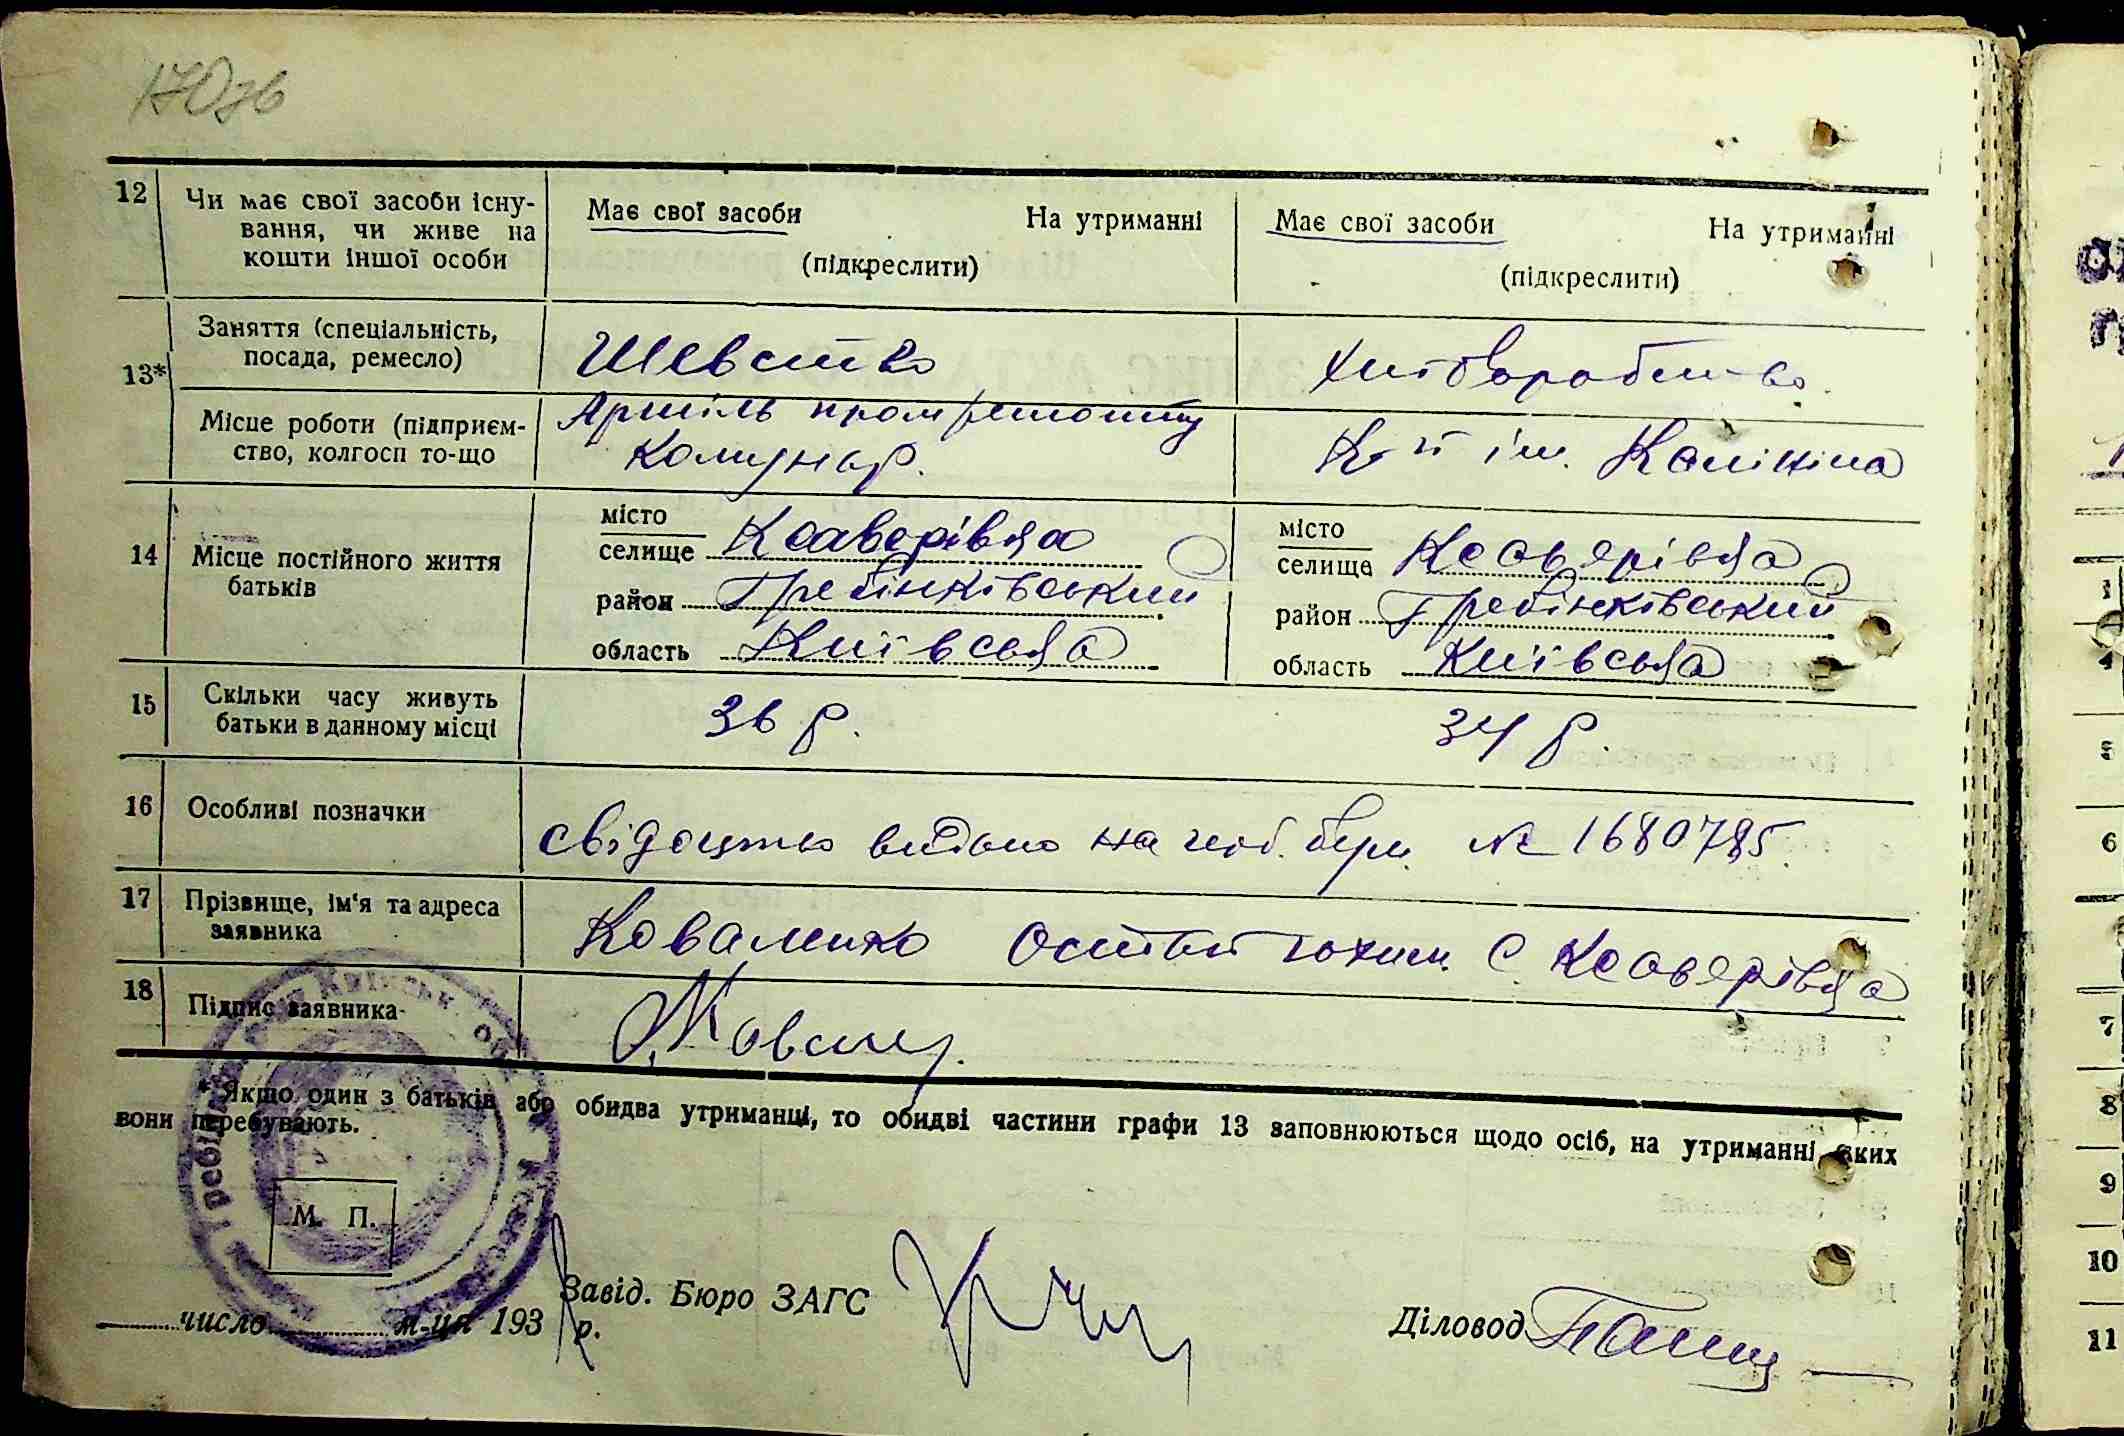 170 зв
12 Чи має свої засоби існу-
вання, чи живе на
кошти іншої особи
Має свої засоби На утриманні
(підкреслити)
Має свої засоби На утриманні
(підкреслити)
13* Заняття (спеціальність,
посада, ремесло)
Шевство
Хліборобство
Місце роботи (підприєм-
ство, колгосп то-що
Артіль
Комунар.
К-п ім. Калініна
14 Місце постійного життя
батьків
місто
селище Ксаверівка
район Гребінківський
область Київська
місто
селище Ксаверівка
район Гребінківський
область Київська
15 Скільки часу живуть
батьки в данному місці
36 р.
34 р.
16 Особливі позначки
свідоцтво видано на №1680785.
17 Прізвище, ім'я та адреса
заявника
Коваленко Остап с Ксаверівка
18 Підпис заявника
* Якщо один з батьків або обидва утриманці, то обидві частини графи 13 заповнюються щодо осіб, на утриманні яких
вони перебувають.
М. П.
число м-ця 193 р.
Завід. Бюро ЗАГС
Діловод
1
4
5
6
7
8
9
10
11